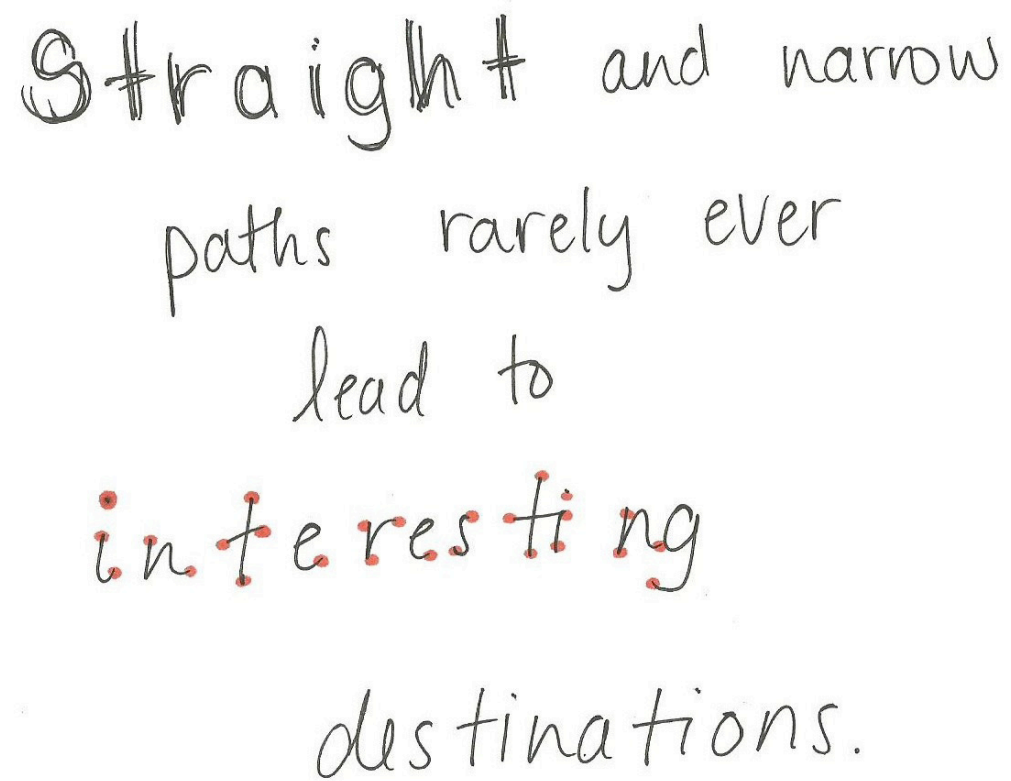 Straight and narrow
paths rarely ever
lead to
interesting
destinations.